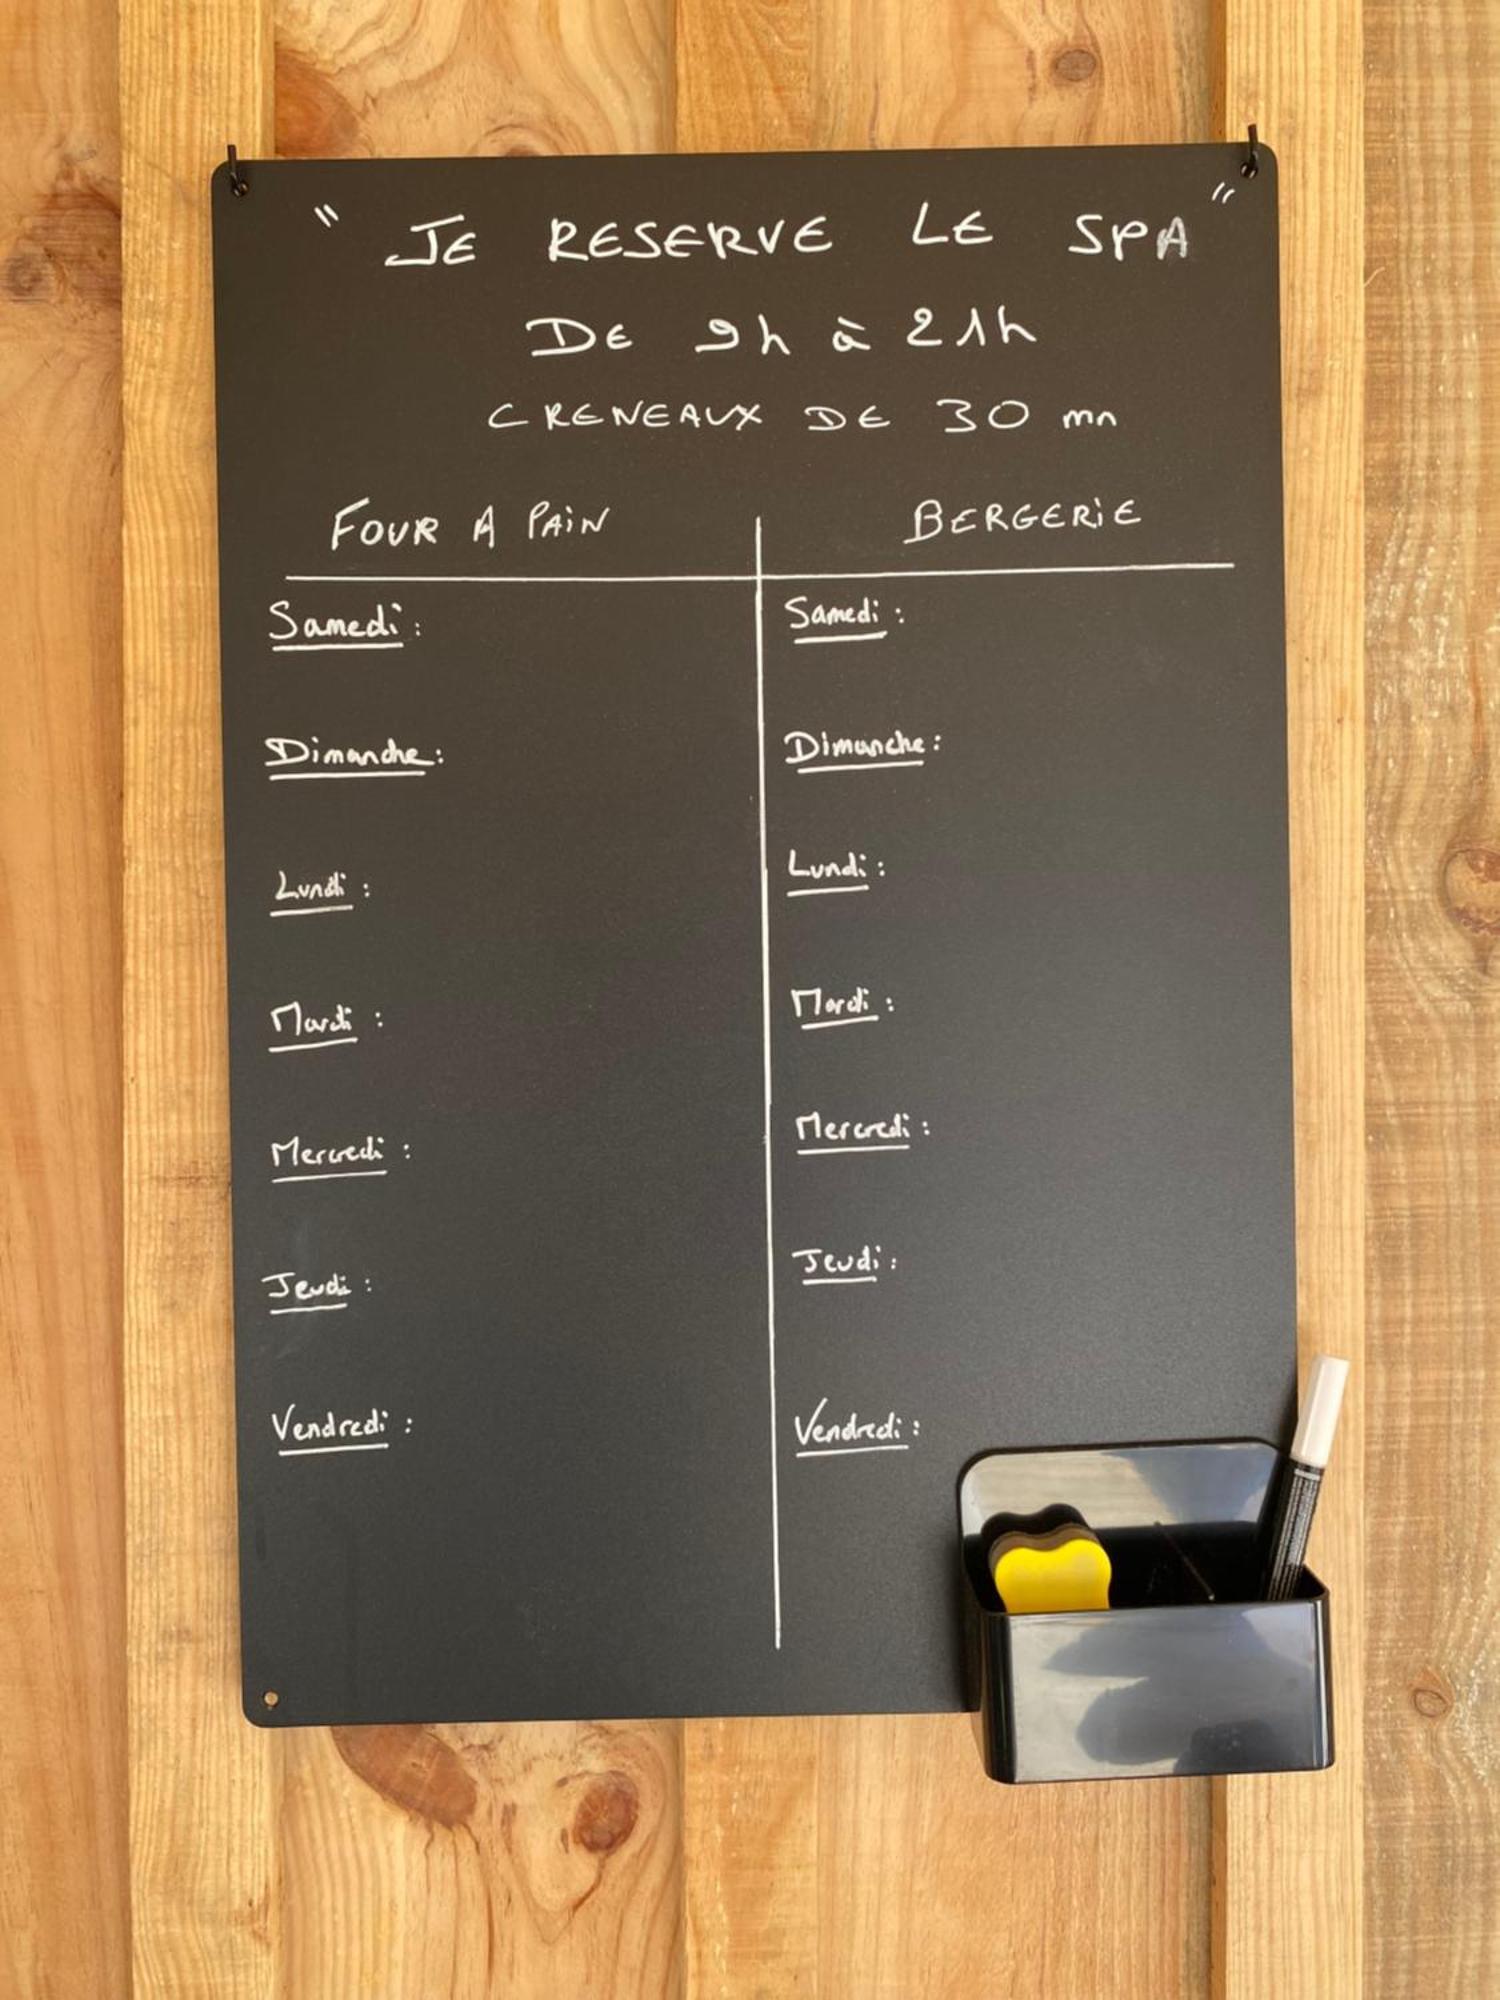 " JE RESERVE LE SPA "
DE 9h à 21h
CRENEAUX DE 30 mn
FOUR A PAIN
BERGERIE
Samedi :
Samedi :
Dimanche :
Dimanche :
Lundi :
Lundi :
Mardi :
Mardi :
Mercredi :
Mercredi :
Jeudi :
Jeudi :
Vendredi :
Vendredi :